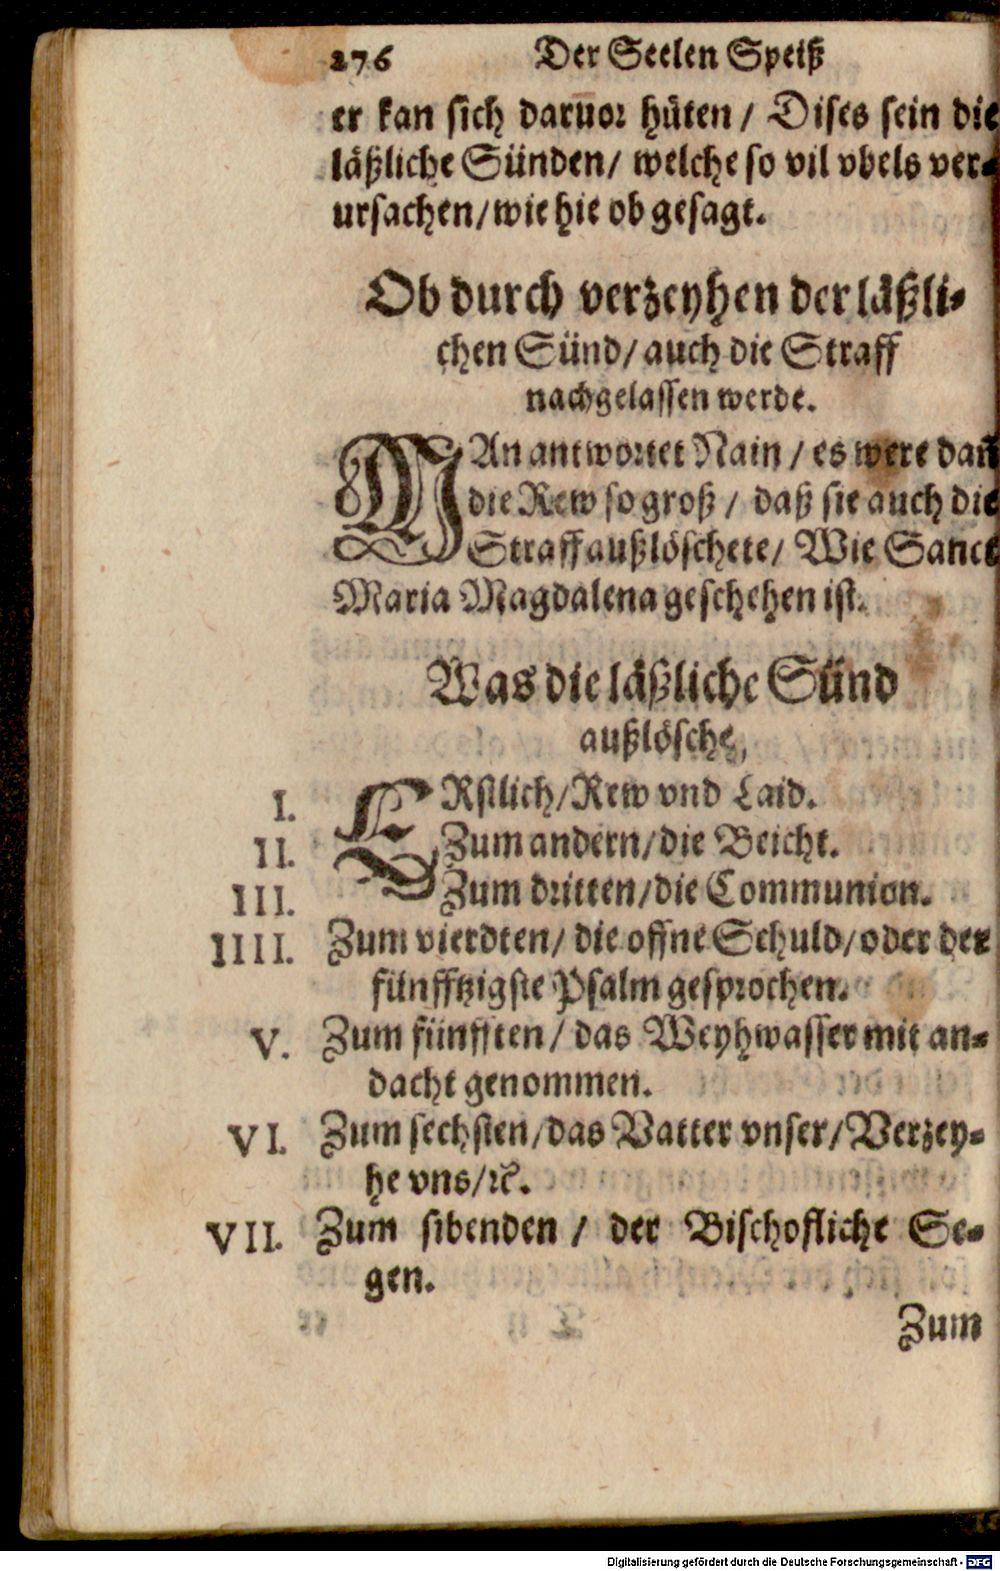 276 Der Seelen Speiß
er kan sich daruor hüten / Dises sein die
läßliche Sünden / welche so vil vbels ver-
ursachen / wie hie ob gesagt.
Ob durch verzeyhen der läßli-
chen Sünd / auch die Straff
nachgelassen werde.
MAn antwortet Nain / es were dañ
die Rew so groß / daß sie auch die
Straff außlöschete / Wie Sanct
Maria Magdalena geschehen ist.
Was die läßliche Sünd
außlösche,
I. ERstlich / Rew vnd Laid.
II. Zum andern / die Beicht.
III. Zum dritten / die Communion.
IIII. Zum vierdten / die offne Schuld / oder der
fünfftzigste Psalm gesprochen.
V. Zum fünfften / das Weyhwasser mit an-
dacht genommen.
VI. Zum sechsten / das Vatter vnser / Verzey-
he vns / ꝛc.
VII. Zum sibenden / der Bischofliche Se-
gen.
Zum
Digitalisierung gefördert durch die Deutsche Forschungsgemeinschaft - DFG